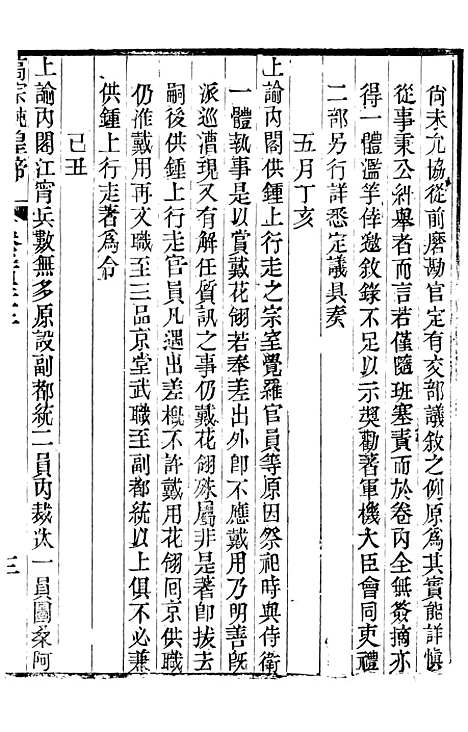 尙未允協從前磨勘官定有交部議敘之例原爲其實能詳愼
從事秉公糾舉者而言若僅隨班塞責而於卷內全無簽摘亦
得一體濫竽倖邀敘錄不足以示奬勸著軍機大臣會同吏禮
二部另行詳悉定議具奏
五月丁亥
上諭內閣供鍾上行走之宗室覺羅官員等原因祭祀時與侍衛
一體執事是以賞戴花翎若奉差出外卽不應戴用乃明善旣
派巡漕現又有解任質訊之事仍戴花翎殊屬非是著卽拔去
嗣後供鍾上行走官員凡遇出差槪不許戴用花翎囘京供職
仍准戴用再文職至三品京堂武職至副都統以上俱不必兼
供鍾上行走著爲令
己丑
上諭內閣江甯兵數無多原設副都統二員內裁汰一員圖桑阿
高宗純皇帝
三